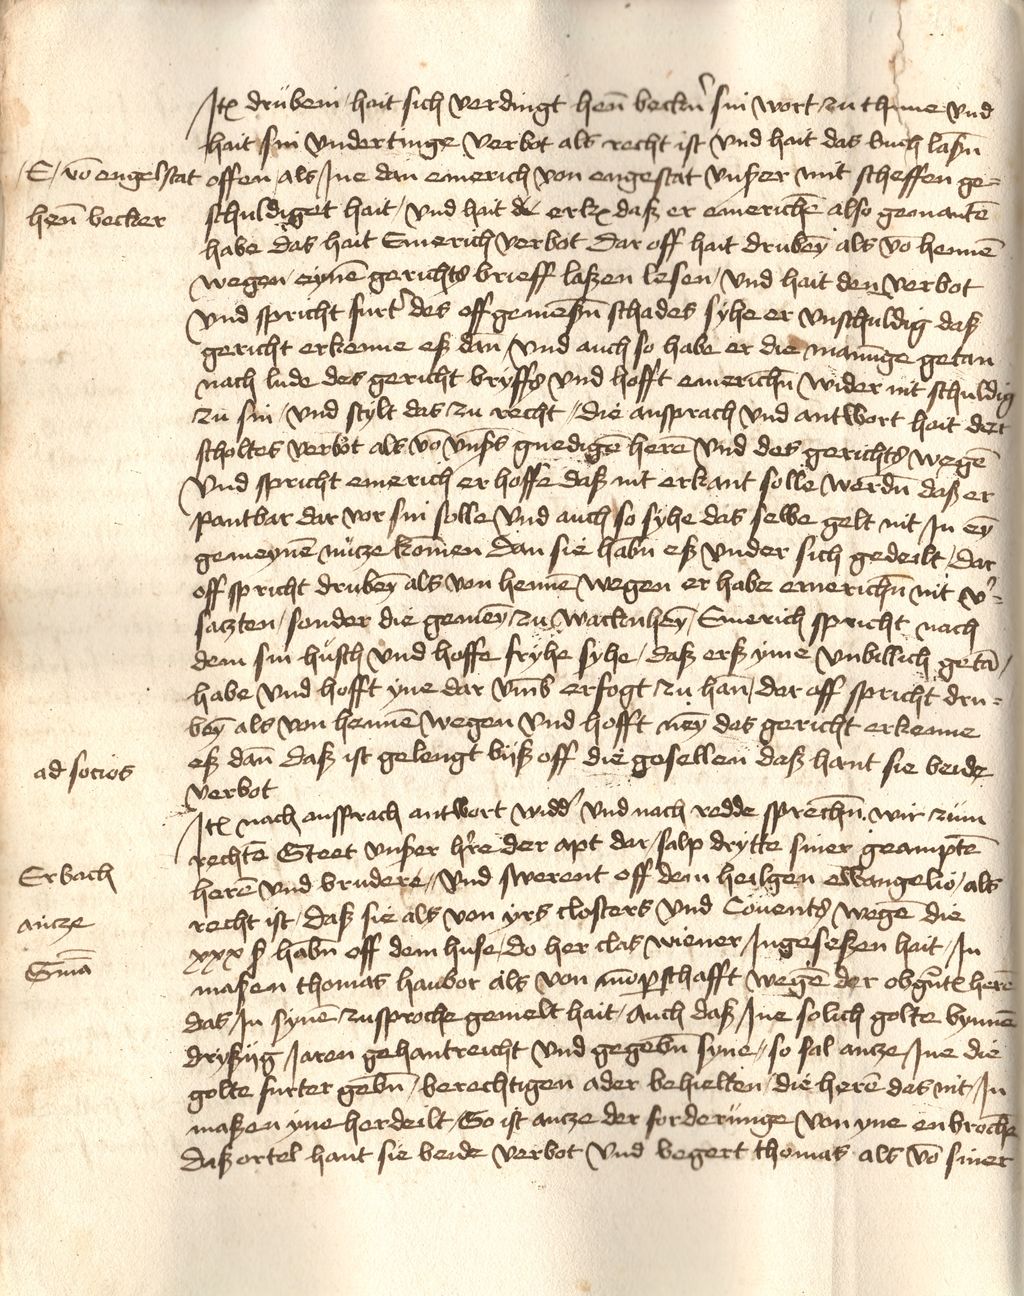 Itē drubein hait sich verdingt hēn beckñ sin wort zu thune vnd
hait sin vndertinge verbot als recht ist vnd hait das buch laßin
E vō engelstat
offen als Ine dan emerich von engestat vnßer mit scheffen ge=
hēn becker
schuldiget hait / vnd hait erkē daß er emerichē also genantē
habe das hait Emerich verbot Dar off hait drubeȳ als vō hennē
wegen eynē gerichts brieff laßen lesen / vnd hait den verbot
vnd spricht furt' des off gemeßñ schades syhe er vnschuldig daß
gericht erkenne eß dan / vnd auch so habe er die manūge getan
nach lude des gericht bryffs vnd hofft emerichñ wider nit schuldig
zu sin / vnd stylt das zu recht / die ansprach vnd antwort hait der
scholtes verbot als vō vnßs gnedigē herē vnd des gerichts wegē
vnd spricht emerich er hoffe daß nit erkant solle werdñ daß er
pantbar dar vor sin solle vnd auch so syhe das selbe gelt nit In eȳ
gemeynē nücze komen Dan sie habñ eß vnder sich gedeilt / Dar
off spricht drubeȳ als von hennē wegen er habe emerichñ nit v'=
saczten / sonder die gemeȳ zu wacknheȳ / Emerich spricht nach
dem sin hüsch vnd hoffe fryhe syhe / daß erß yme vnbillich getā /
habe vnd hofft yne dar vmb erfogt zu han / dar off spricht dru=
beȳ als von hennē wegen vnd hofft neȳ das gericht erkenne
eß dañ Daß ist gelengt byß off die gesellen daß hant sie beide
ad socios
verbot
Itē nach ansprach antwort widd' vnd nach redde sprechñ wir zum
rechtē Steet vnßer h're der apt dar / salp drytte siner geamptē
Erbach
herē vnd brudere / vnd swerent off dem heilgen ewangelio / als
ancze
recht ist / daß sie als von yrs closters vnd Couents wegē die
xxx ß habñ off dem huse / do her clas wiener Ingeseßen hait / In
Gma
maßen thomas haubor als von mōpschafft wegē der obgñtē herē
das In synē zusproche gemelt hait / Auch daß Ine solich golte bynnē
dryßiig Jaren gehantreicht vnd gegebñ syne / so sal ancze Ine die
golte furter gebñ / berechtigen ader behielten die herē des nit / In
maßen yne herdeilt / So ist ancze der forderunge von yne enbrochē
Daß ortel hant sie beide verbot vnd begert thomas als vō siner